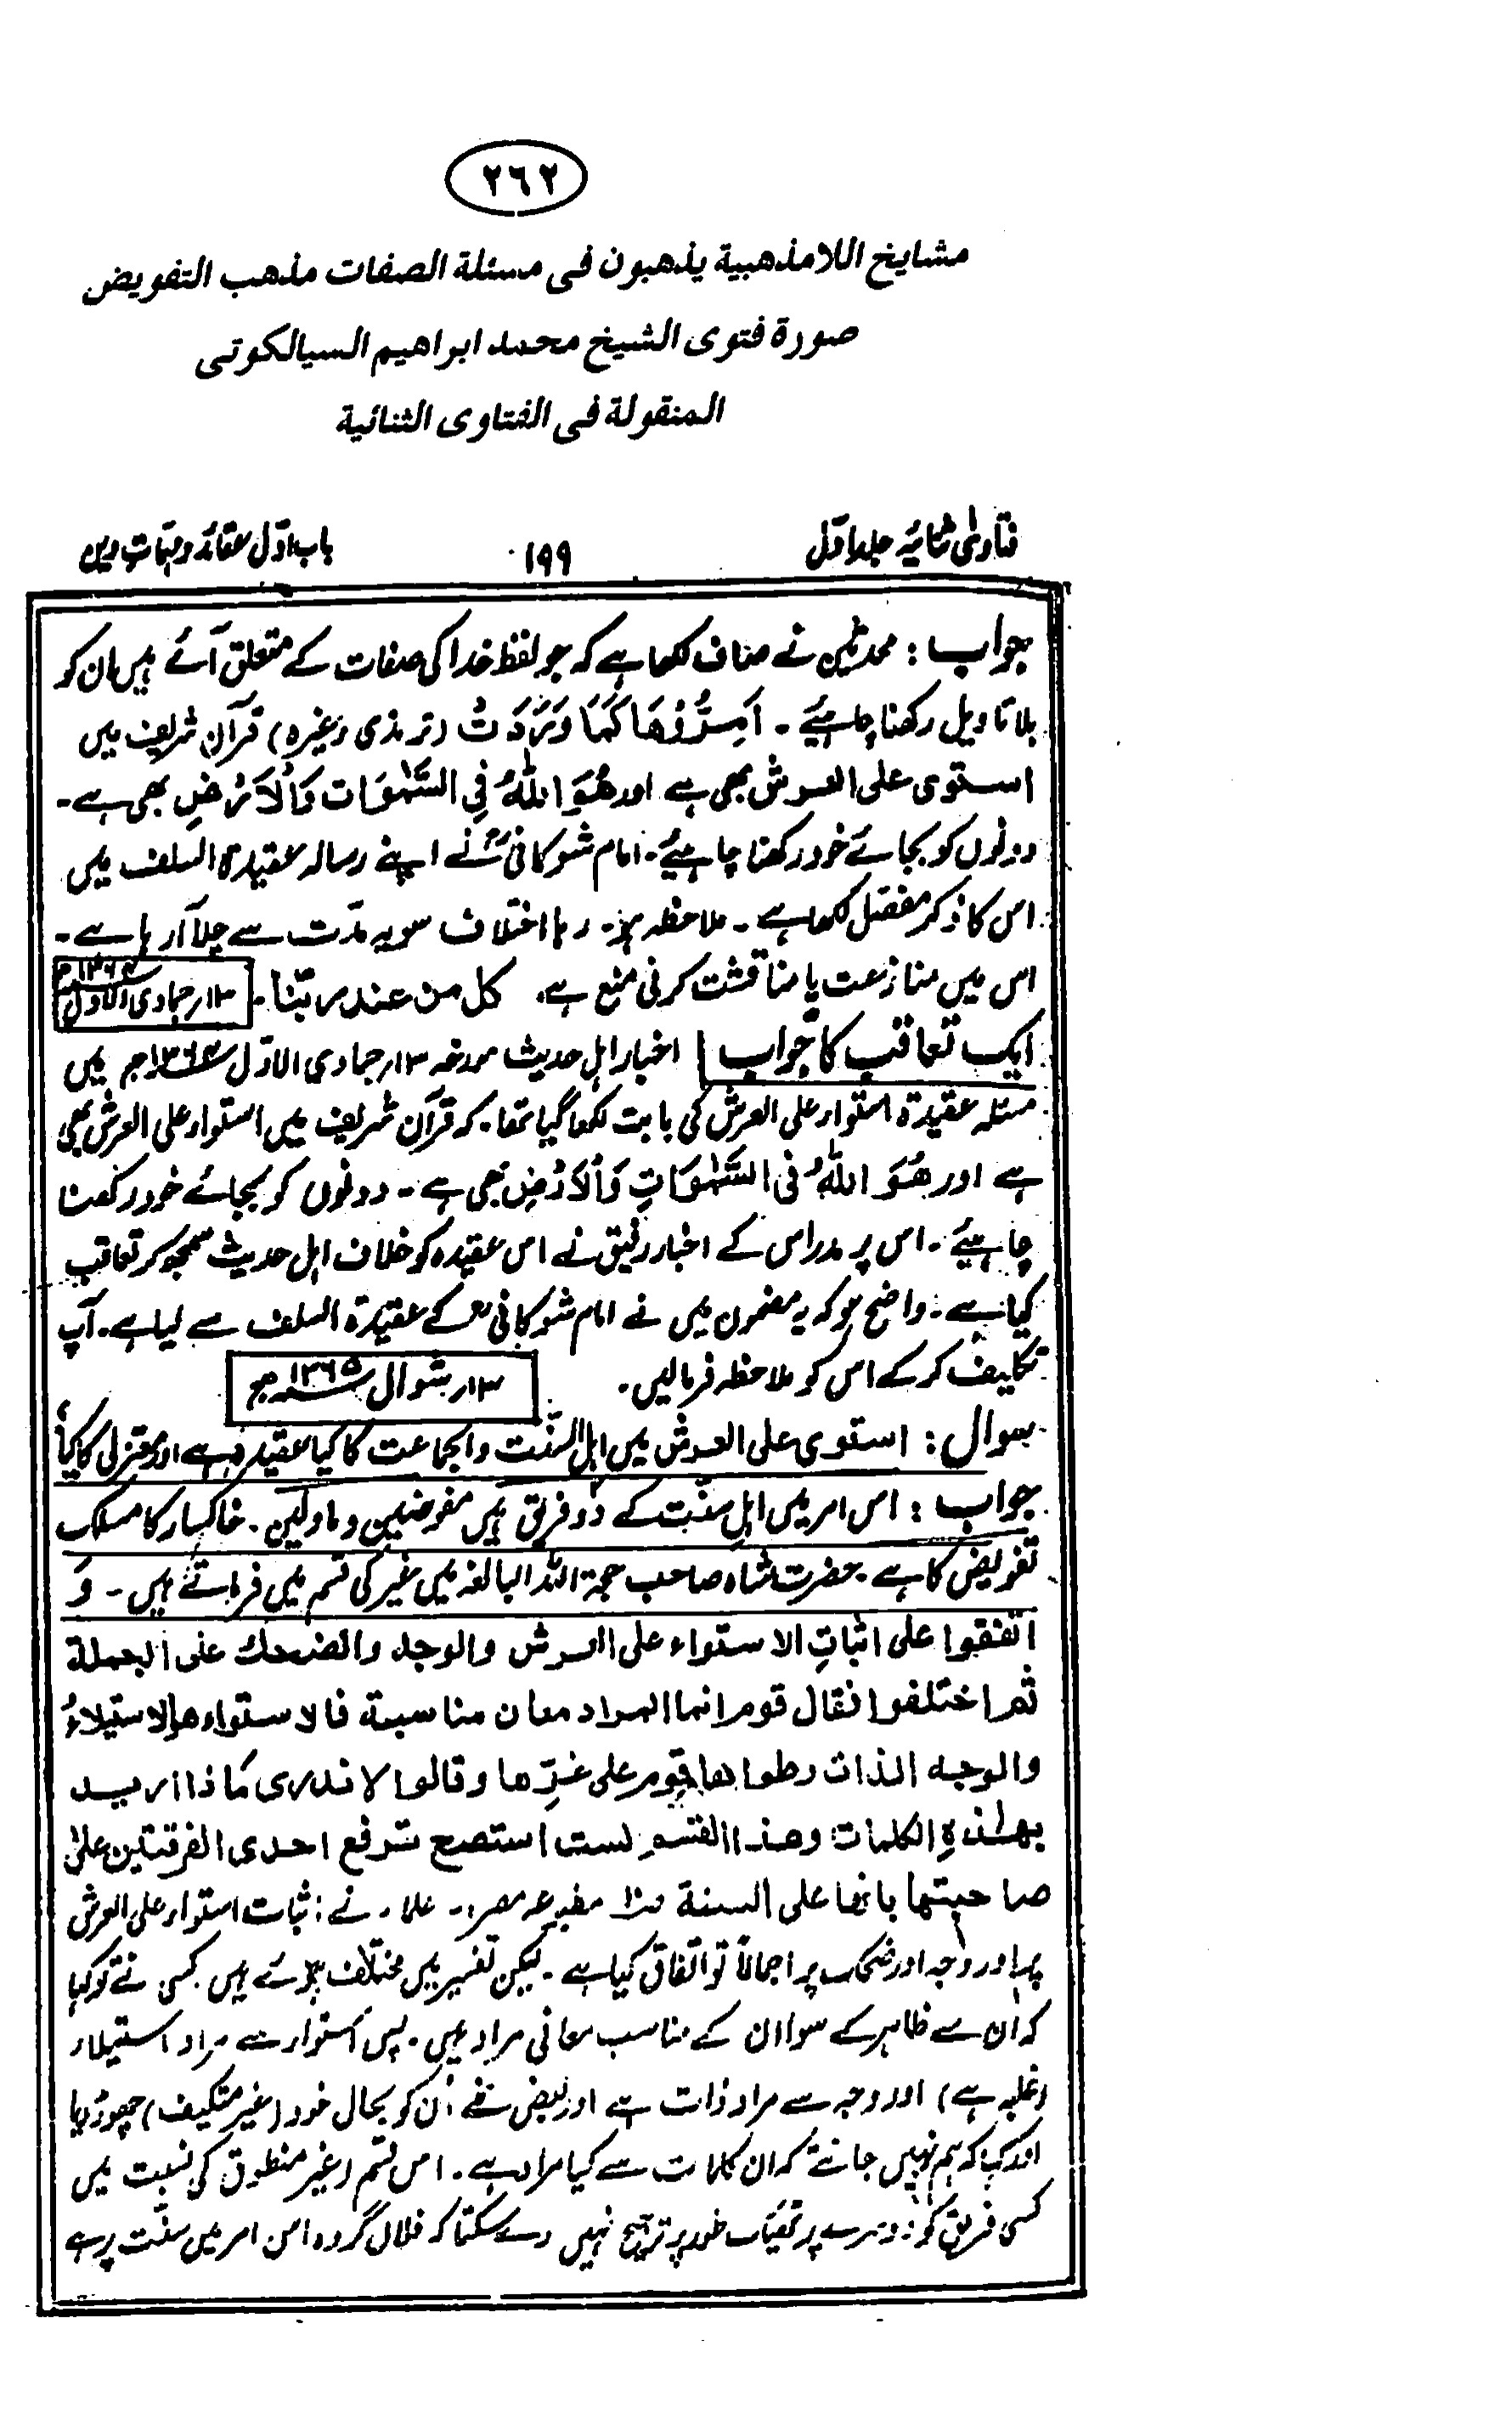 ٢٦٢
مشايخ اللامذهبية يذهبون فى مسئلة الصفات مذهب التفويض
صورة فتوى الشيخ محمد ابراهيم السيالكوتى
المنقولة فى الفتاوى الثنائية
فتاویٰ ثنائیہ جلد اوّل ۱۹۹ باب اوّل عقائد و مہمات دین
جواب : محدثین نے صاف لکھا ہے کہ جو لفظ خدا کی صفات کے متعلق آئے ہیں ان کو
بلا تاویل رکھنا چاہیئے ۔ اَمِرُّوْهَا كَمَا وَرَدَتْ (ترمذی وغیرہ) قرآن شریف میں
استوى على العرش بھی ہے اور هُوَ اللّٰهُ فِى السَّمٰوَات وَالْاَرْضِ بھی ہے ۔
دونوں کو بجائے خود رکھنا چاہیئے ۔ امام شوکانیؒ نے اپنے رسالہ عقیدة السلف میں
اس کا ذکر مفصل لکھا ہے ۔ ملاحظہ ہو ۔ رہا اختلاف سو یہ مدّت سے چلا آ رہا ہے ۔
اس میں منازعت یا مناقشت کرنی منع ہے ۔ كل من عند ربّنا ۔ ۱۳ر جمادی الاول
ایک تعاقب کا جواب | اخبار اہل حدیث مورخہ ۱۳ر جمادی الاوّل ۱۳۶۴ھ میں
مسئلہ عقیدۃ استواء علی العرش کی بابت لکھا گیا تھا ۔ کہ قرآن شریف میں استواء علی العرش بھی
ہے اور هُوَ اللّٰهُ فى السَّمٰوَاتِ وَالْاَرْضِ بھی ہے ۔ دونوں کو بجائے خود رکھنا
چاہیئے ۔ اس پر مدراس کے اخبار رفیق نے اس عقیدہ کو خلاف اہل حدیث سمجھ کر تعاقب
کیا ہے ۔ واضح ہو کہ یہ مضمون میں نے امام شوکانیؒ کے عقیدۃ السلف سے لیا ہے ۔ آپ
تکلیف کر کے اس کو ملاحظہ فرمالیں ۔ ۱۳ر شوال ۱۳۶۵ھ
سوال : استوى على العرش میں اہل السنّت والجماعت کا کیا عقیدہ ہے اور معتزلی کا کیا؟
جواب : اس امر میں اہل سنّت کے دو فریق ہیں مفوضین و ماولین ۔ خاکسار کا مسلک
تفویض کا ہے ۔ حضرت شاہ صاحب حجۃ اللہ البالغہ میں غیر کی قسم میں فرماتے ہیں ۔ وَ
اتفقوا على اثباتِ الاستواء على العرش والوجه والضحك على الجملة
ثم اختلفوا فقال قوم انما المراد معان مناسبة فالاستواء هو الاستيلاءُ
والوجه الذات وطواها قوم على غرّها وقالوا لا ندرى مَا ذا اريد
بهٰذهِ الكلمات وهذا القسم لست استصح ترفع احدى الفرقتين علىٰ
صاحبتها بانها على السنة مطبوعہ مصر ۔ علماء نے اثبات استواء علی العرش
پر اور وجہ اور ضحک پر اجمالاً تو اتفاق کیا ہے ۔ لیکن تفسیر میں مختلف ہوئے ہیں کسی نے تو کہا
کہ ان سے ظاہر کے سوا ان کے مناسب معانی مراد ہیں ۔ پس استواء سے مراد استیلاء
(غلبہ ہے) اور وجہ سے مراد ذات ہے اور بعض نے ان کو بحال خود (غیر متکیف) چھوڑ دیا
اور کہا کہ ہم نہیں جانتے کہ ان کلمات سے کیا مراد ہے ۔ اس قسم (غیر منطوق کی نسبت میں
کسی فریق کو دوسرے پر ٹھیک طور پر ترجیح نہیں دے سکتا کہ فلاں گروہ اس امر میں سنّت پر ہے